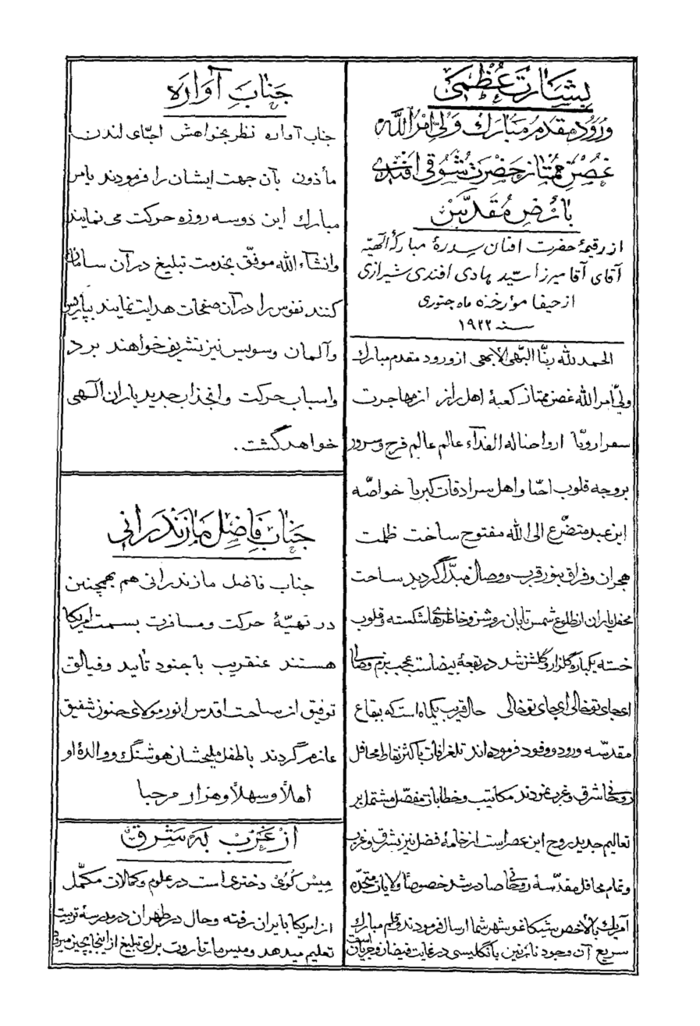 بشارت عظمی
ورود مقدم مبارک ولی امرالله
غصن ممتاز حضرت شوقی افندی
بارض مقدس
از رقیمهٔ حضرت افنان سدرهٔ مبارکهٔ الهیّه
آقای آقا میرزا سید هادی افندی شیرازی
از حیفا مورخه ماه جنوری
سنه ۱۹۲۲
الحمد لله ربنا البهی الابهی از ورود مقدم مبارک
ولی امرالله غصن ممتاز کعبهٔ اهل راز از مهاجرت
سفر اروپا ارواحنا له الفدآء عالم عالم فرح و سرور
بر وجه قلوب احبا و اهل سرادقات کبریا خواصّه
این عبد متضرع الی الله مفتوح ساخت ظلمت
هجران و فراق بنور قرب و وصال مبدّل گردید ساحت
محفل یاران از طلوع شمس تابان روشن و خاطرهای شکسته و قلوب
خسته یکباره گلزار و گلشن شد در بقعهٔ بیضاست عجب بزم وصالی
ای جای تو خالی ای جای تو خالی حال قریب یکماه است که بقاع
مقدسه ورود و وفود فرموده‌اند تلغرافات باکثر نقاط محافل
روحانی شرق و غرب نمودند مکاتیب و خطابات مفصل مشتمل بر
تعالیم جدید روح این عصر است از خامهٔ فضل نیز بشرق و غرب
و تمام محافل مقدسه روحانی صادر شد خصوصاً ولایات متحده
آمریک بالاخص شیکاغو شهر شما ارسال فرمودند و قلم مبارک
سریع آن وجود نازنین بانگلیسی در غایت فیضان و جریان است
جناب آواره
جناب آواره نظر بخواهش احبّای لندن
مأذون بآن جهت ایشان را فرمودند بامر
مبارک این دو سه روزه حرکت می نمایند
وانشاء الله موفّق بخدمت تبلیغ در آن سامان
کنند نفوس را در آن صفحات هدایت نمایند بپاریس
و آلمان و سویس نیز تشریف خواهند برد
و اسباب حرکت و انجذاب جدید یاران الهی
خواهد گشت.
جناب فاضل مازندرانی
جناب فاضل مازندرانی هم همچنین
در تهیّهٔ حرکت و مسافرت بسمت امریکا
هستند عنقریب با جنود تایید و فیالق
توفیق از ساحت اقدس انور مولای حنون شفیق
عازم گردند با طفل ملیحشان هوشنگ و والدهٔ او
اهلاً و سهلاً و هزار مرحبا
از غرب به شرق
میس کوی دختری است در علوم و کمالات مکمّل
از امریکا بایران رفته و حال در طهران در مدرسهٔ تربیت
تعلیم میدهد و میس مارتا روت برای تبلیغ از اینجا بچین میرود